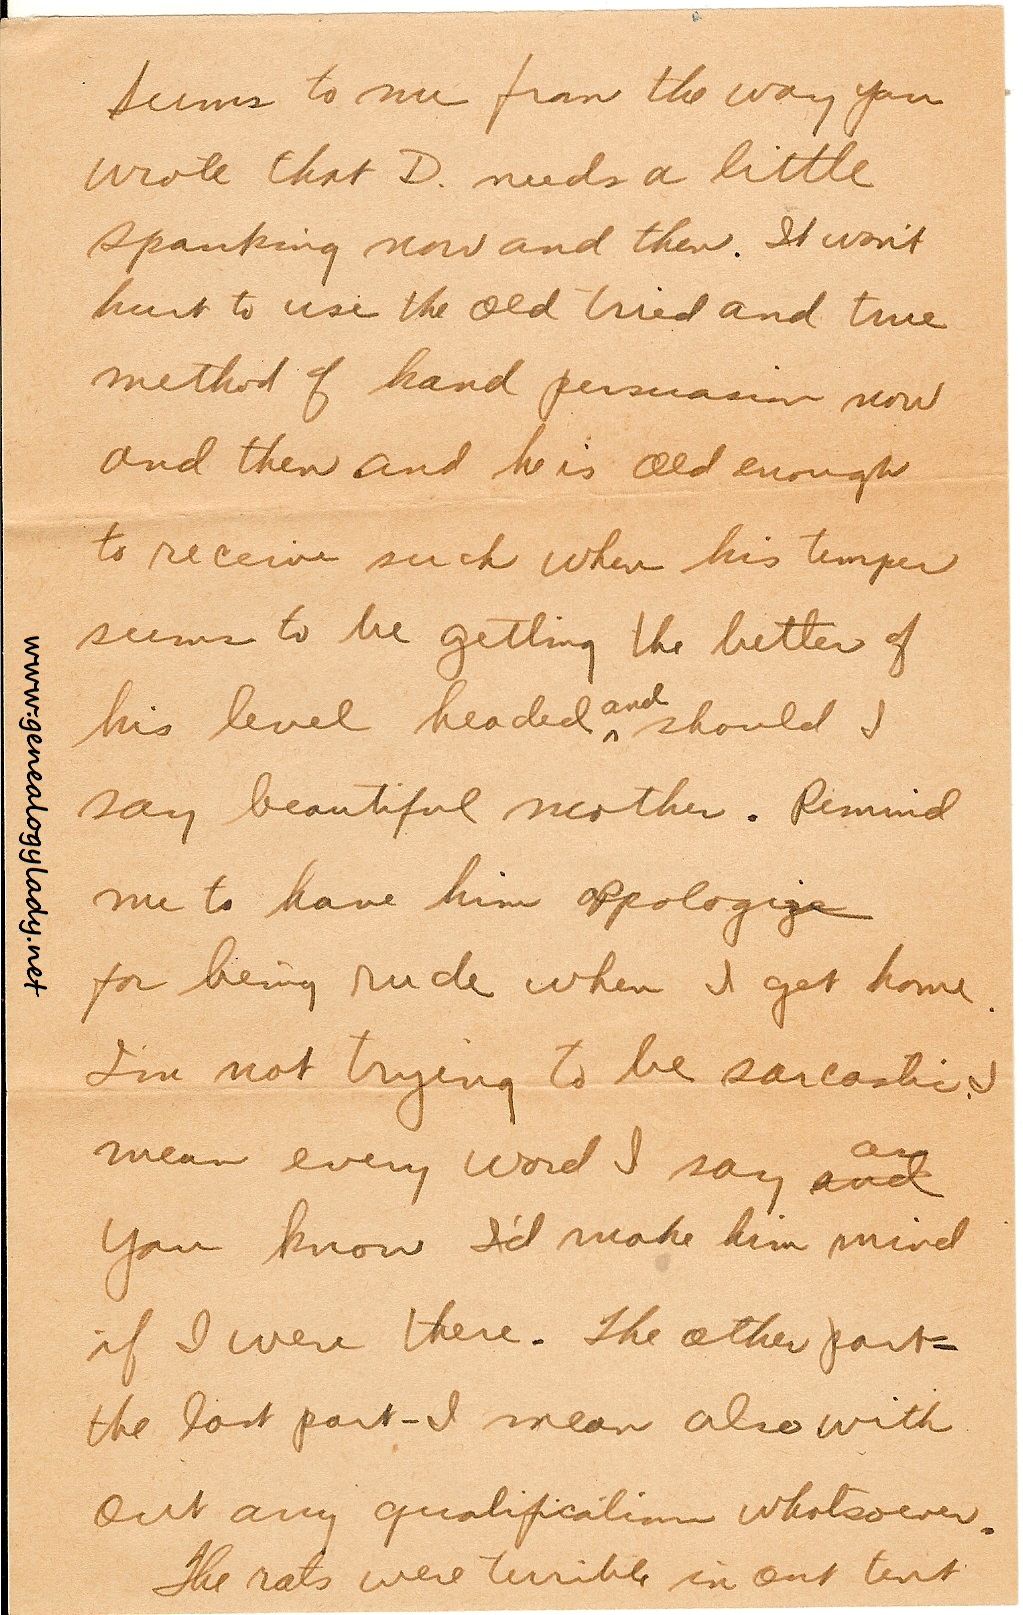 Seems to me from the way you
wrote that D. needs a little
spanking now and then. It won't
hurt to use the old tried and true
method of hand persuasion now
and then and he is old enough
to receive such when his temper
seems to be getting the better of
his level headed and should I
say beautiful mother. Remind
me to have him appologize
for being rude when I get home.
I'm not trying to be sarcastic. I
mean every word I say an
and
you know I'd make him mind
if I were there. The other part-
the last part-I mean also with
out any qualification whatsoever.
The rats were terrible in out tent
www.genealogylady.net